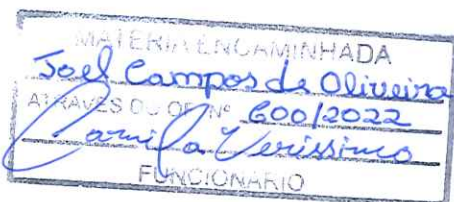 MATÉRIA ENCAMINHADA
Joel Campos de Oliveira
ATRAVÉS DO OF. Nº 600/2022
Camila Verissimo
FUNCIONÁRIO